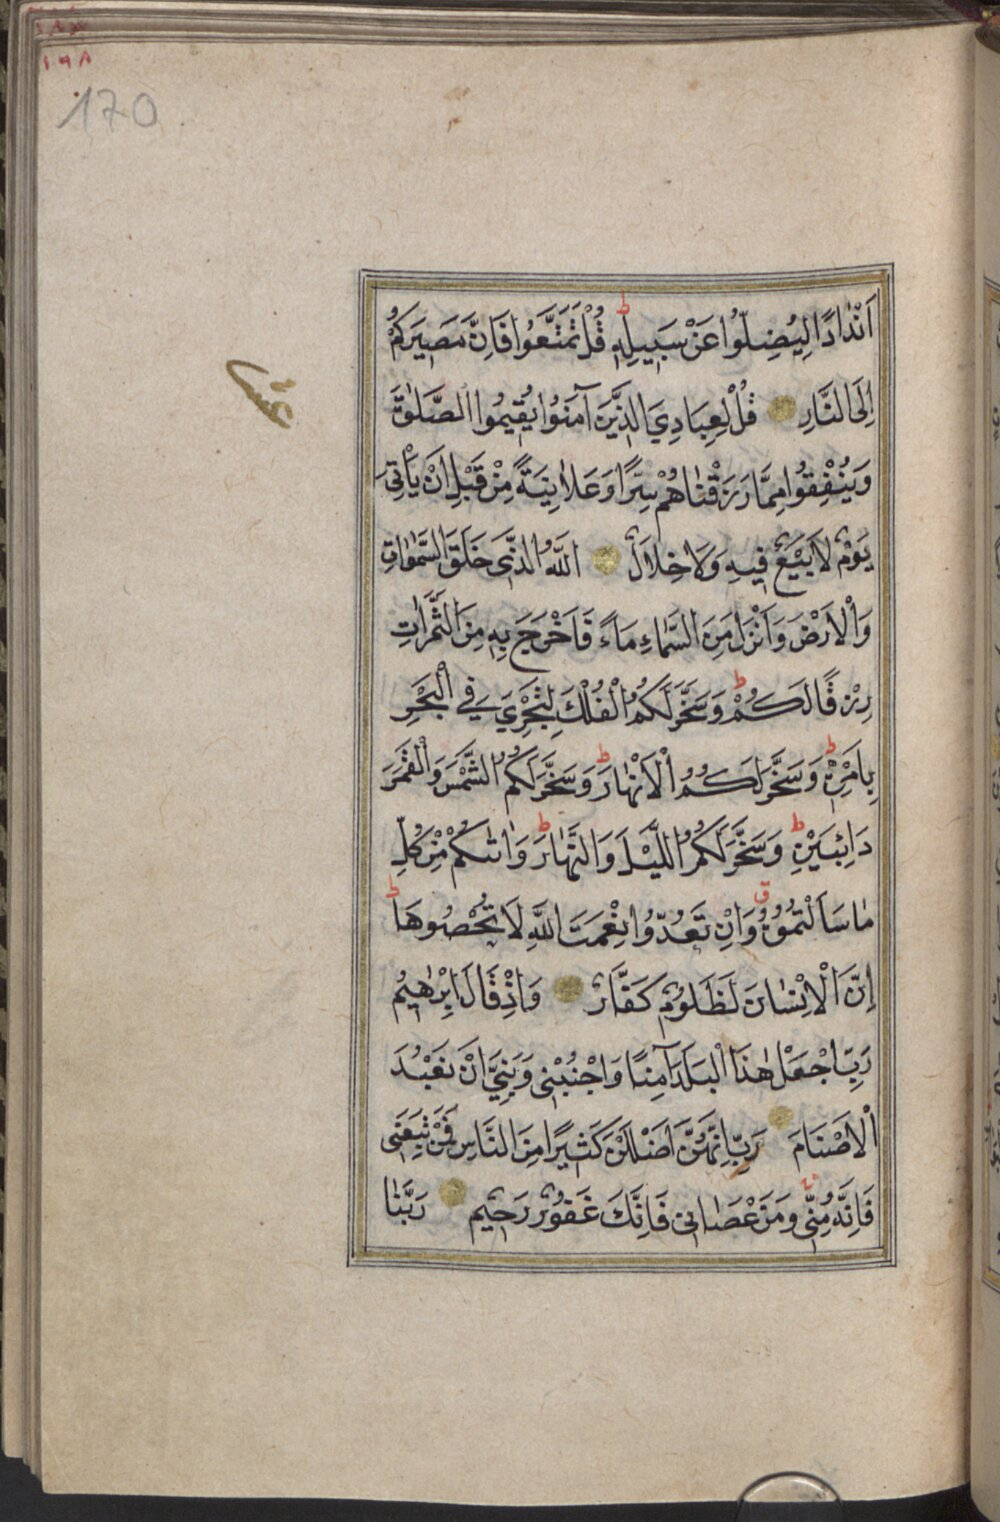 ١٦٨
170
اَنْدَادًا لِيُضِلُّوا عَنْ سَبِيلِهِ ط قُلْ تَمَتَّعُوا فَاِنَّ مَصِيرَكُمْ
اِلَى النَّارِ قُلْ لِعِبَادِيَ الَّذِينَ آمَنُوا يُقِيمُوا الصَّلٰوةَ
عشر
وَيُنْفِقُوا مِمَّا رَزَقْنَاهُمْ سِرًّا وَعَلَانِيَةً مِنْ قَبْلِ اَنْ يَأْتِيَ
يَوْمٌ لَا بَيْعٌ فِيهِ وَلَا خِلَالٌ اَللّٰهُ الَّذِى خَلَقَ السَّمٰوَاتِ
وَالْاَرْضَ وَاَنْزَلَ مِنَ السَّمَاءِ مَاءً فَاَخْرَجَ بِهِ مِنَ الثَّمَرَاتِ
رِزْقًا لَكُمْ ط وَسَخَّرَ لَكُمُ الْفُلْكَ لِتَجْرِيَ فِي الْبَحْرِ
بِاَمْرِهِ ط وَسَخَّرَ لَكُمُ الْاَنْهَارَ ط وَسَخَّرَ لَكُمُ الشَّمْسَ وَالْقَمَرَ
دَائِبَيْنِ ط وَسَخَّرَ لَكُمُ اللَّيْلَ وَالنَّهَارَ ط وَاٰتٰىكُمْ مِنْ كُلِّ
مَا سَاَلْتُمُوهُ ق وَاِنْ تَعُدُّوا نِعْمَتَ اللّٰهِ لَا تُحْصُوهَا ط
اِنَّ الْاِنْسَانَ لَظَلُومٌ كَفَّارٌ وَاِذْ قَالَ اِبْرٰهِيمُ
رَبِّ اجْعَلْ هٰذَا الْبَلَدَ آمِنًا وَاجْنُبْنِى وَبَنِيَّ اَنْ نَعْبُدَ
الْاَصْنَامَ رَبِّ اِنَّهُنَّ اَضْلَلْنَ كَثِيرًا مِنَ النَّاسِ فَمَنْ تَبِعَنِى
فَاِنَّهُ مِنِّى وَمَنْ عَصَانِى فَاِنَّكَ غَفُورٌ رَحِيمٌ رَبَّنَا